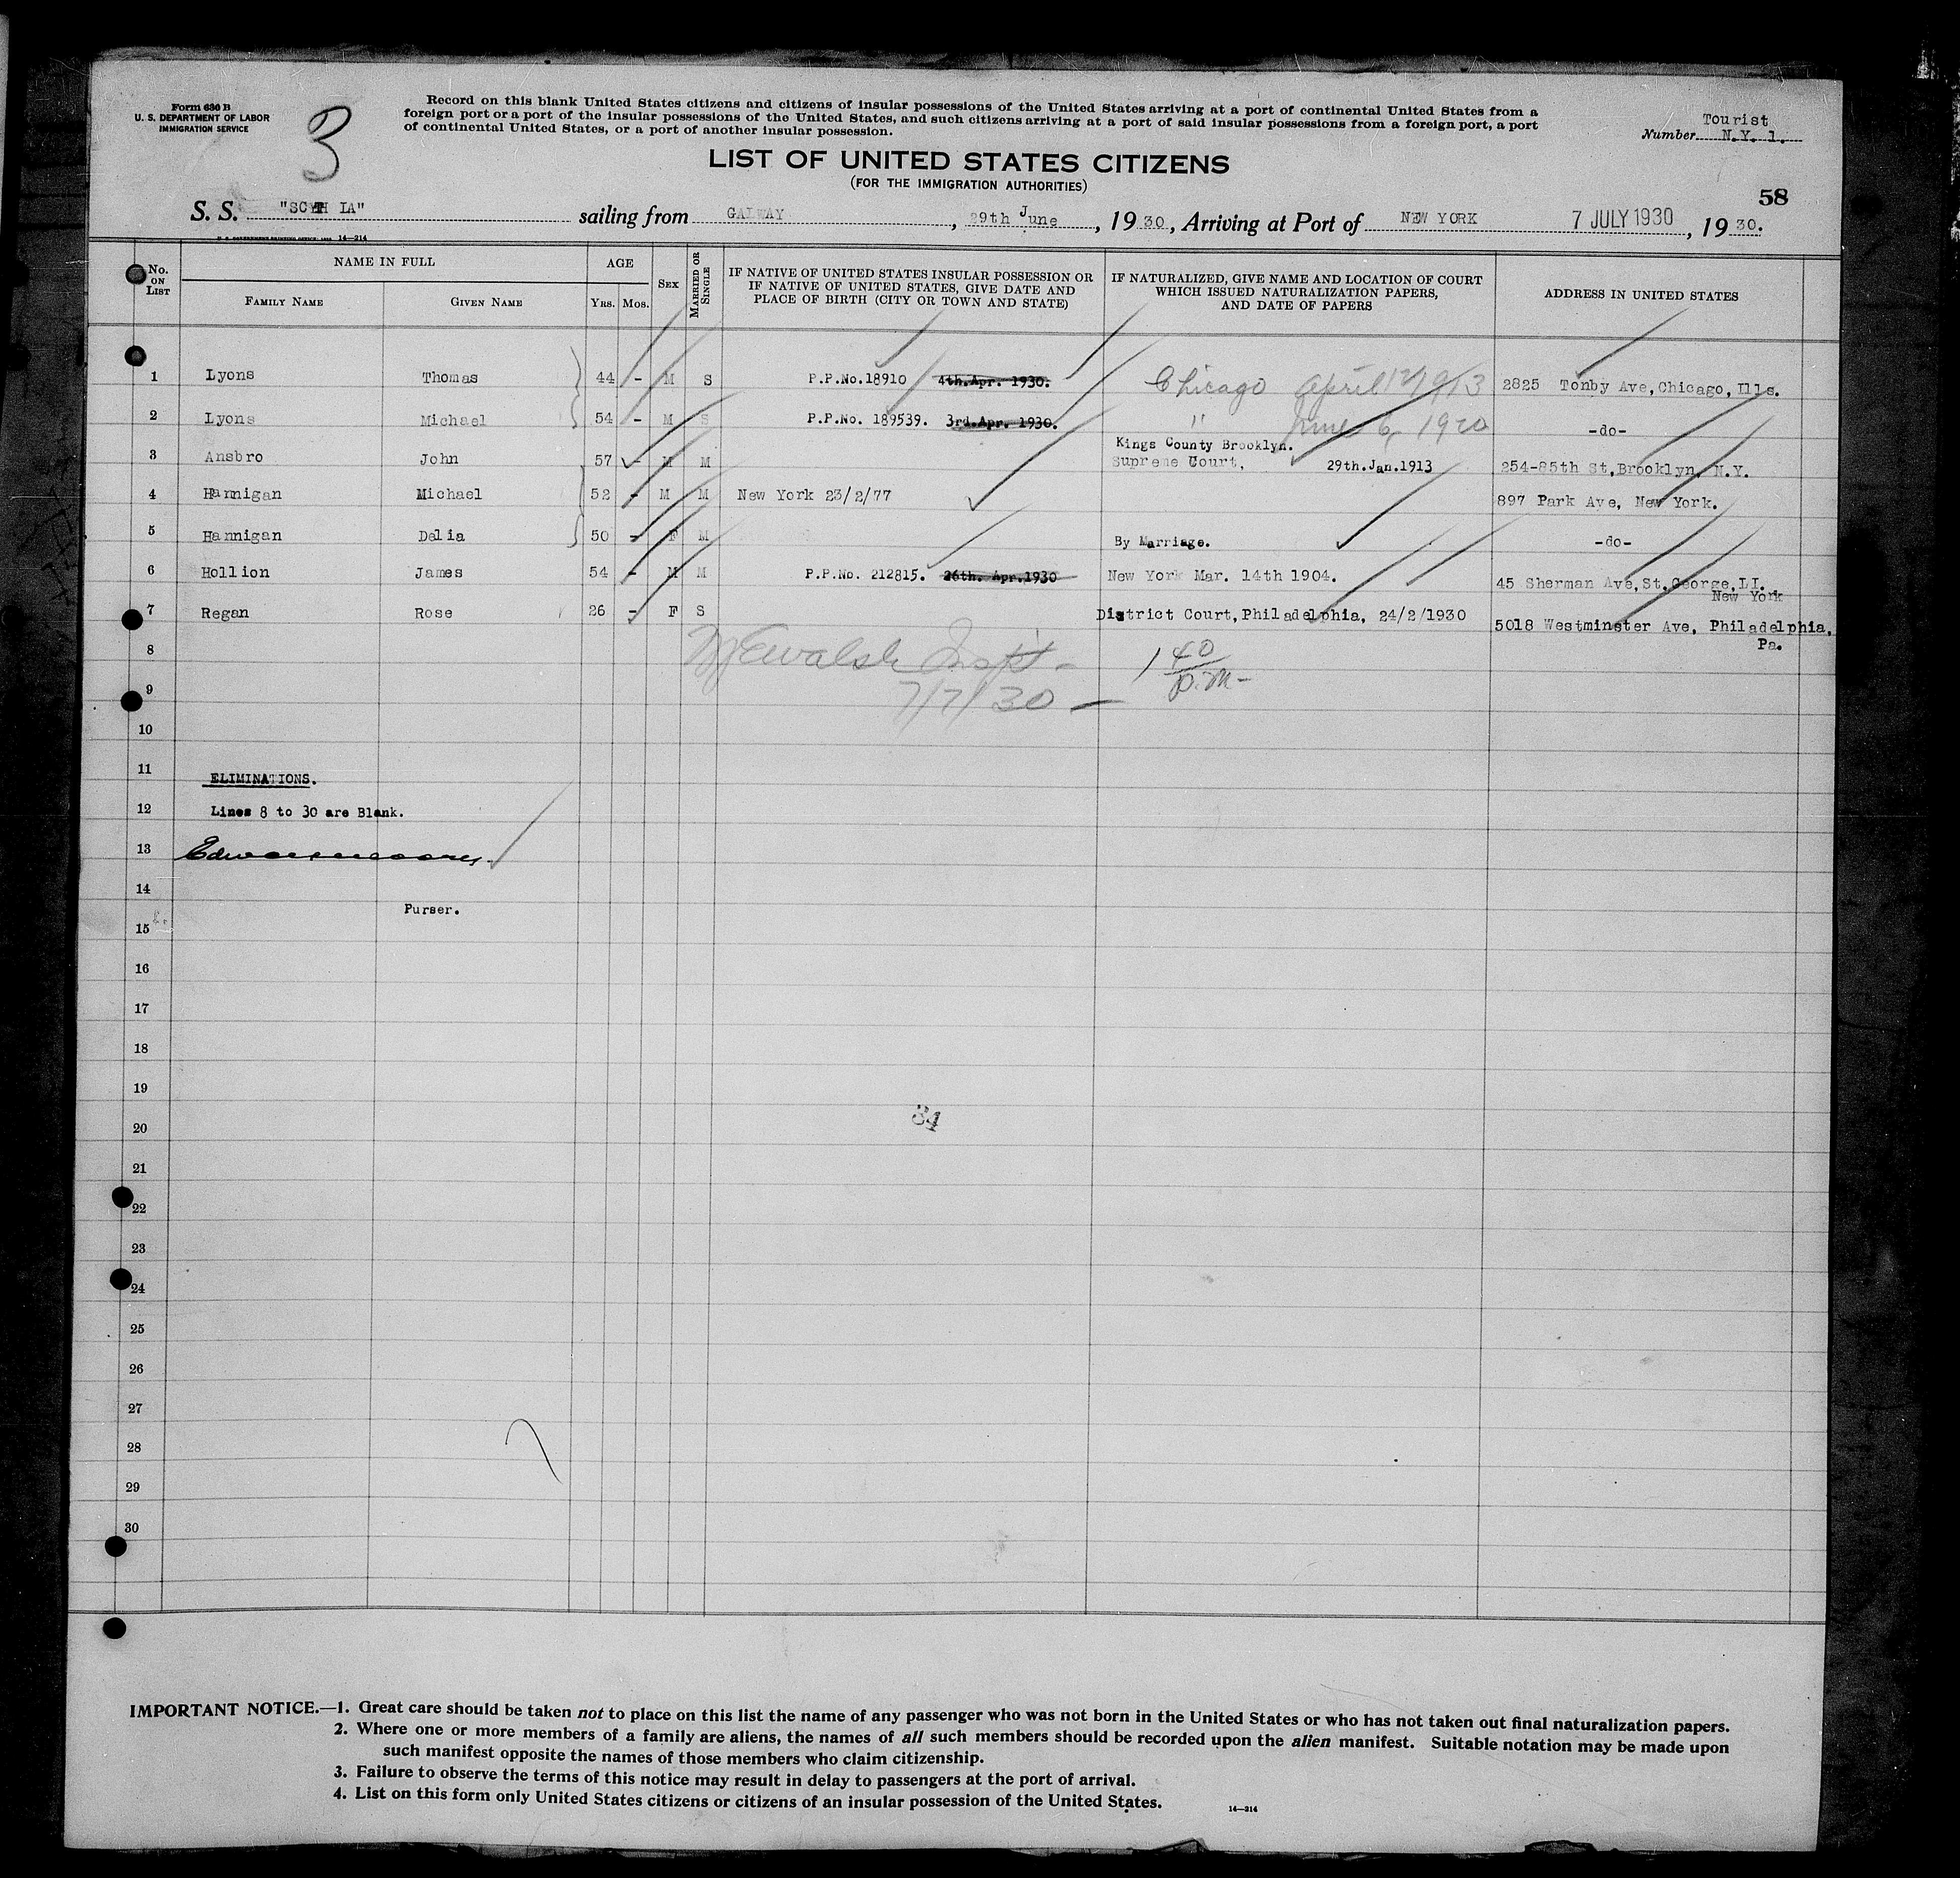 Form 630 B
U. S. DEPARTMENT OF LABOR
IMMIGRATION SERVICE
3
Record on this blank United States citizens and citizens of insular possessions of the United States arriving at a port of continental United States from a
foreign port or a port of the insular possessions of the United States, and such citizens arriving at a port of said insular possessions from a foreign port, a port
of continental United States, or a port of another insular possession.
Tourist
Number N.Y. 1.
LIST OF UNITED STATES CITIZENS
(FOR THE IMMIGRATION AUTHORITIES)
58
S. S. "SCYTHIA" sailing from GALWAY, 29th June, 1930, Arriving at Port of NEW YORK 7 JULY 1930, 1930.
14—214
No. ON LIST
NAME IN FULL
FAMILY NAME
GIVEN NAME
AGE
YRS.
MOS.
SEX
MARRIED OR SINGLE
IF NATIVE OF UNITED STATES INSULAR POSSESSION OR
IF NATIVE OF UNITED STATES, GIVE DATE AND
PLACE OF BIRTH (CITY OR TOWN AND STATE)
IF NATURALIZED, GIVE NAME AND LOCATION OF COURT
WHICH ISSUED NATURALIZATION PAPERS,
AND DATE OF PAPERS
ADDRESS IN UNITED STATES
1 Lyons Thomas 44 - M S P.P.No.18910 4th.Apr. 1930. Chicago April 1913 2825 Tonby Ave, Chicago, Ills.
2 Lyons Michael 54 - M S P.P.No. 189539. 3rd.Apr. 1930. " June 6, 1920 -do-
3 Ansbro John 57 - M M Kings County Brooklyn.
Supreme Court, 29th.Jan.1913 254-85th St, Brooklyn, N.Y.
4 Hannigan Michael 52 - M M New York 23/2/77 897 Park Ave, New York.
5 Hannigan Delia 50 - F M By Marriage. -do-
6 Hollion James 54 - M M P.P.No. 212815. 26th. Apr.1930 New York Mar. 14th 1904. 45 Sherman Ave, St.George, LI.
New York
7 Regan Rose 26 - F S District Court, Philadelphia, 24/2/1930 5018 Westminster Ave, Philadelphia,
Pa.
8 Walsh Inspt - 1 40 P.M-
9 7/7/30 —
10
11 ELIMINATIONS.
12 Lines 8 to 30 are Blank.
13
14
Purser.
15
16
17
18
19
20 34
21
22
23
24
25
26
27
28
29
30
IMPORTANT NOTICE.—1. Great care should be taken not to place on this list the name of any passenger who was not born in the United States or who has not taken out final naturalization papers.
2. Where one or more members of a family are aliens, the names of all such members should be recorded upon the alien manifest. Suitable notation may be made upon
such manifest opposite the names of those members who claim citizenship.
3. Failure to observe the terms of this notice may result in delay to passengers at the port of arrival.
4. List on this form only United States citizens or citizens of an insular possession of the United States.
14—214